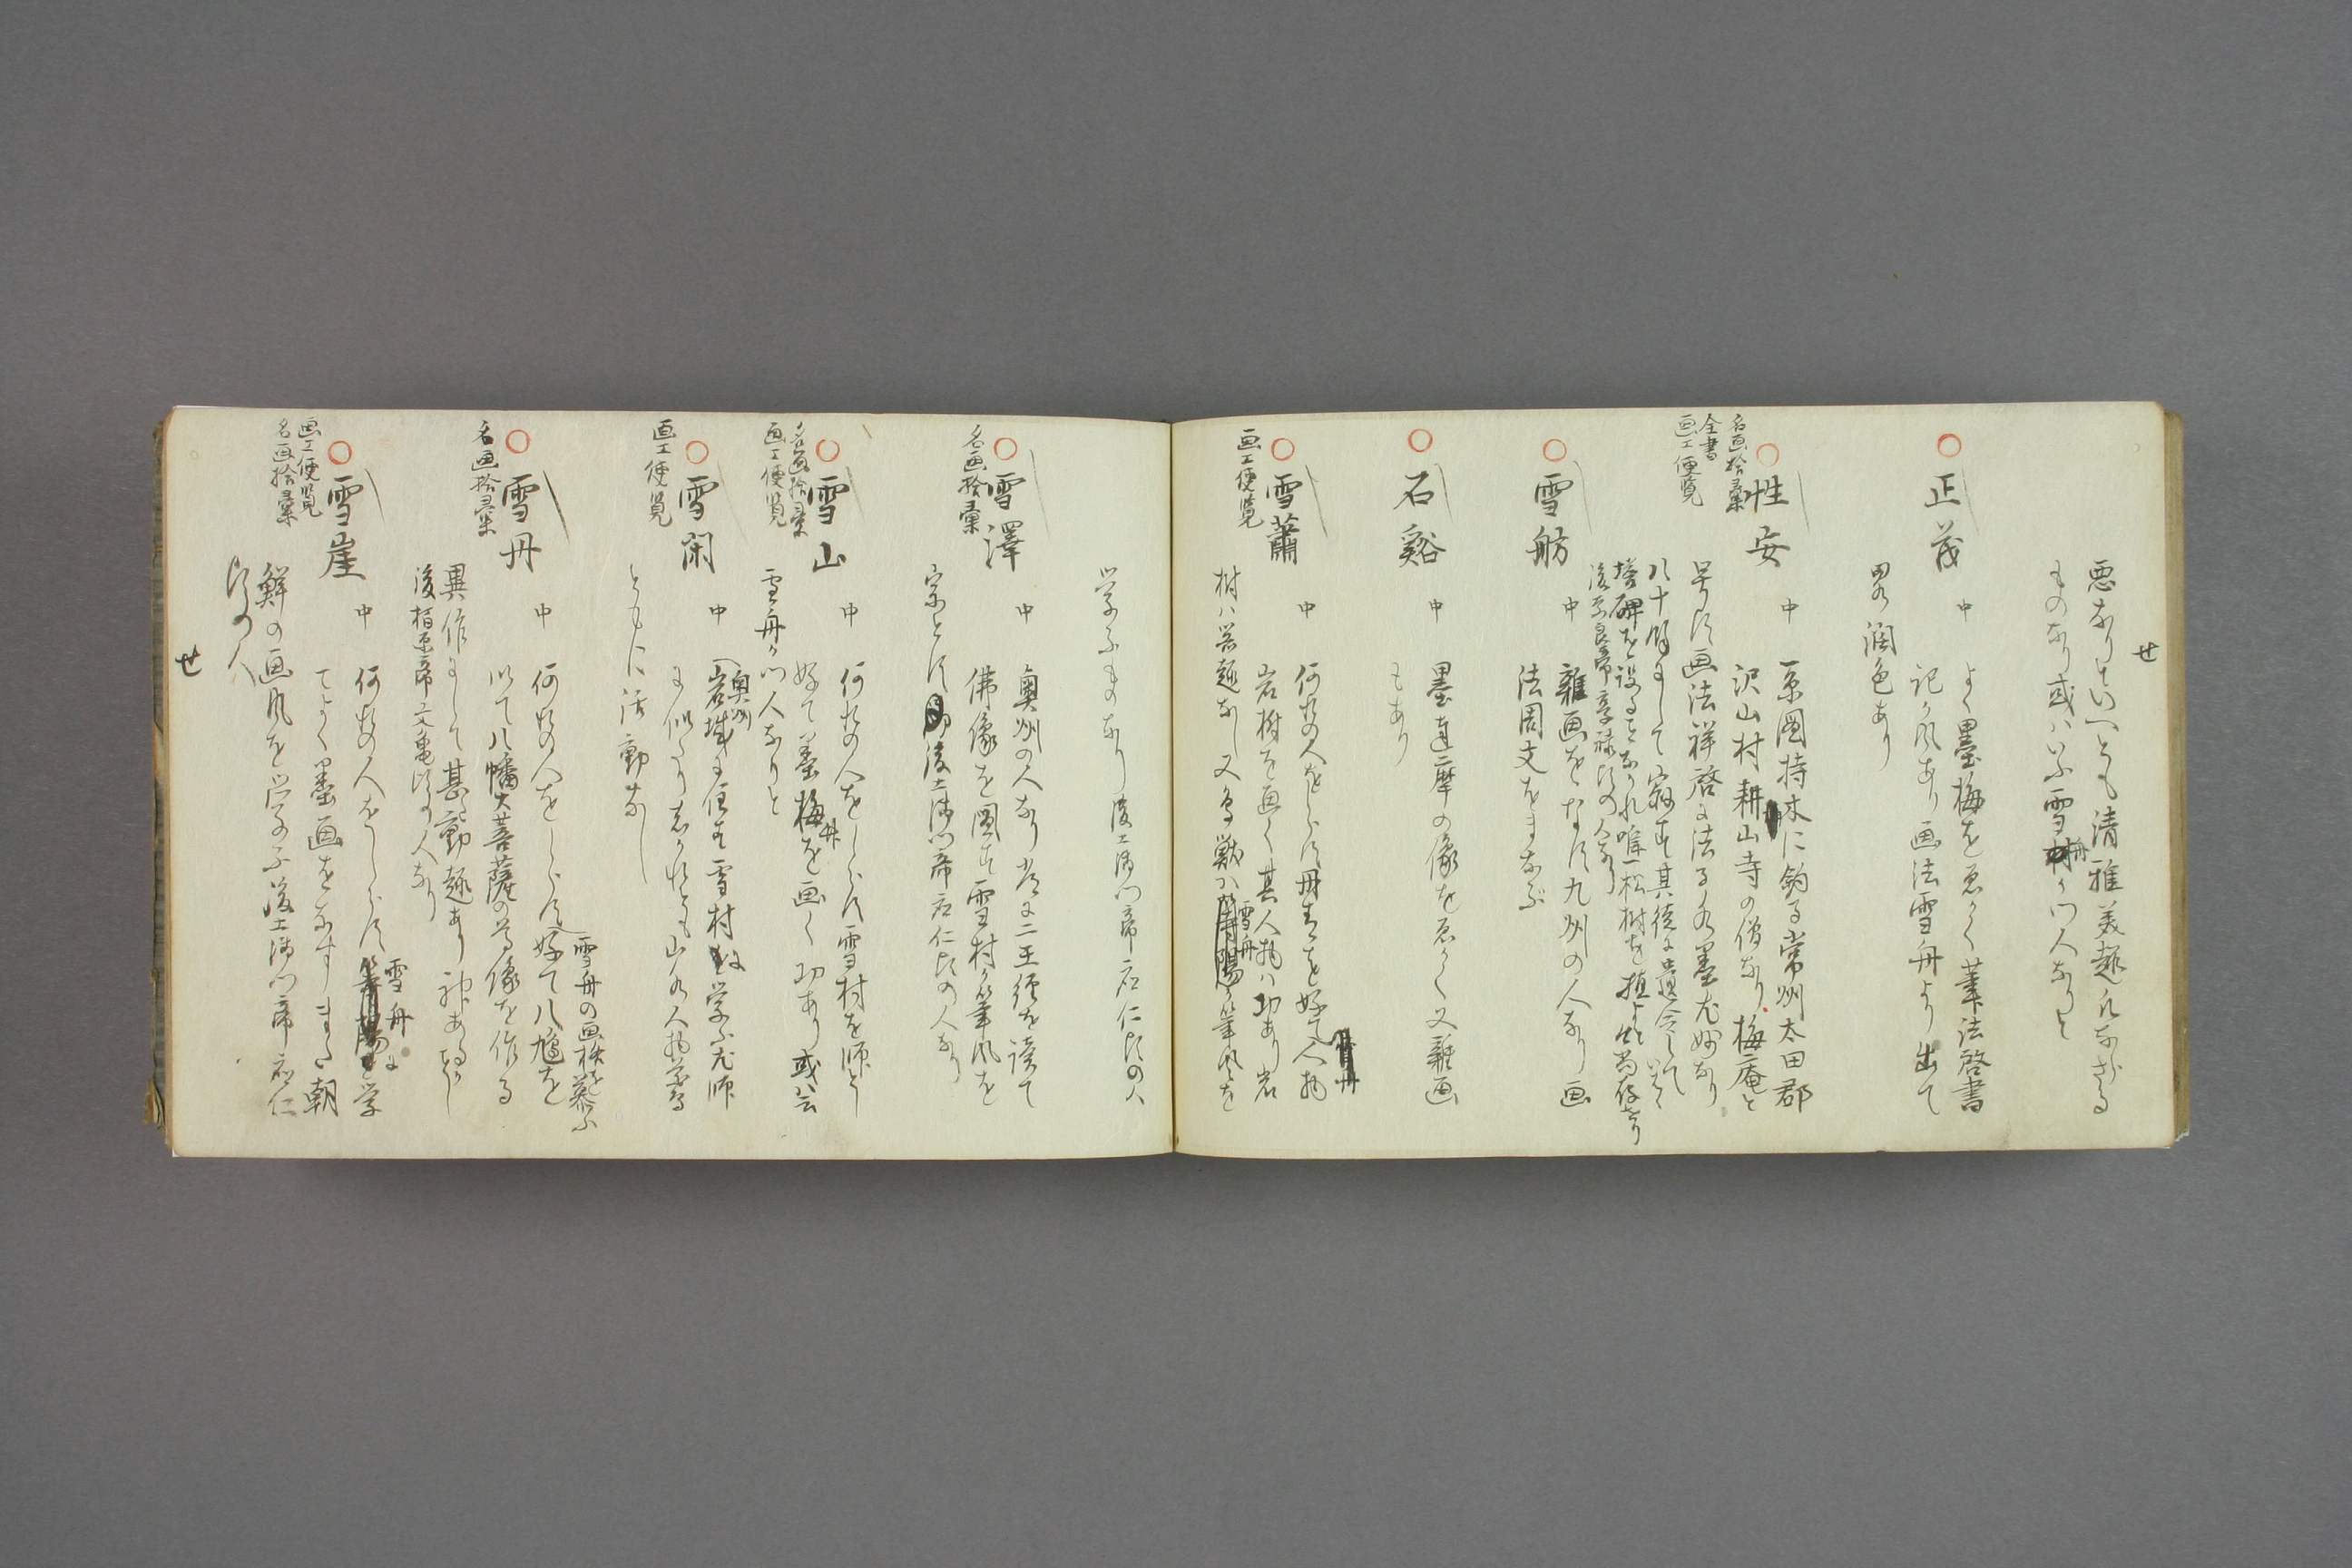 せ
悪なりといへとも清雅美趣凡ならさる
ものなり或ハいふ雪舟か門人なりと
正茂
中
よく墨梅をゑかく筆法啓書
記か風あり画法雪舟より出て
畧潤色あり
名画拾彙
全書
画工便覧
性安
中
系圖持木に釣る常州太田郡
沢山村耕山寺の僧なり梅庵と
早す画法祥啓に法る水墨尤妙なり
八十餘にして寂す其徒に遺令して
塔碑を設ることなかれ唯一松樹を植よと
後奈良帝享禄比の人なり
雪舫
中
雜画をなす九州の人なり画
法周文をまなぶ
石谿
中
墨達摩の像をゑかく又雜画
もあり
画工便覧
雪蕭
中
何許の人をしらす丹青を好て人物
岩樹を画く其人物ハ功あり岩
樹ハ岩趣なし又鳥獣ハ雪舟か筆風を
学ふものなり後土御門帝応仁比の人
名画拾彙
雪澤
中
奥州の人なり常に二王經を讀て
佛像を圖す雪村か筆風を
宗とす後土御門帝応仁比の人なり
名画拾彙
画工便覧
雪山
中
何許の人をしらす雪村を師とし
好て墨梅を画く功あり或云
雪舟か門人なりと
画工便覧
雪閑
中
奥州
岩城に住す雪村に学ふ尤師
に似たり志かれとも山水人物花鳥
ともに活動なし
名画拾彙
雪丹
中
何許の人をしらす好て八鳩を
雪舟の画格を慕ふ
以て八幡大菩薩の尊像を作る
異作にして甚動趣あり
後柏原帝文亀比の人なり
画工便覧
名画拾彙
雪崖
中
何許の人をしらす雪舟に学
てよく墨画をなすまた朝
鮮の画風を学ふ後土御門帝応仁
比の人
せ